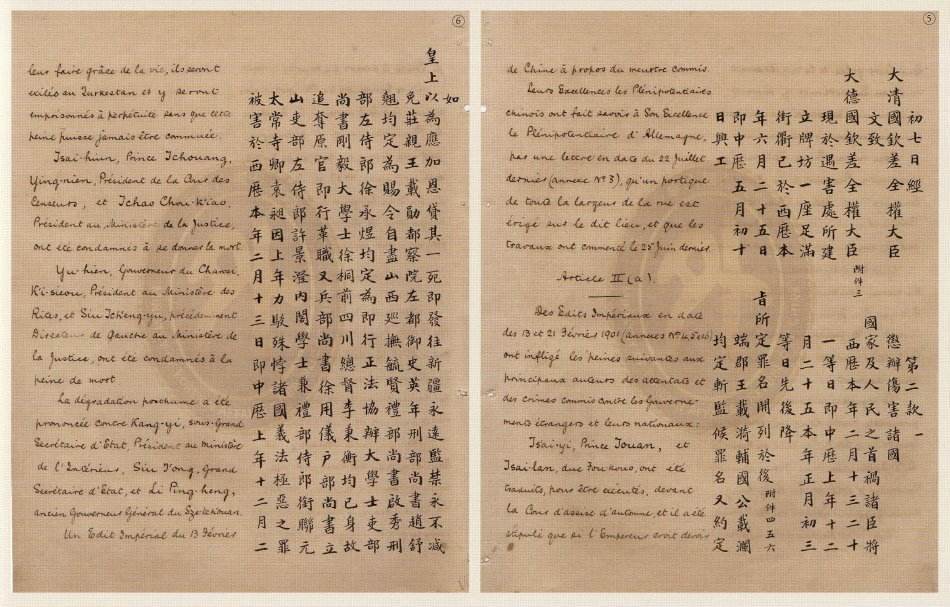 ⑤
de Chine à propos du meurtre commis.
Leurs Excellences les Plénipotentiaires
chinois ont fait savoir à Son Excellence
le Plénipotentiaire d'Allemagne,
par une lettre en date du 22 juillet
dernier (annexe N° 3), qu'un portique
de toute la largeur de la rue est
érigé sur le dit lieu, et que les
travaux ont commencé le 25 juin dernier.
Article II (a).
Des Edits Impériaux en date
des 13 et 21 Février 1901 (annexes N° 4, 5 et 6)
ont infligé les peines suivantes aux
principaux auteurs des attentats et
des crimes commis contre les Gouverne-
ments étrangers et leurs nationaux:
Tsai-yi, Prince Touan, et
Tsai-lan, duc Fou-kouo, ont été
traduits, pour être exécutés, devant
la Cour d'assises d'automne, et il a été
stipulé que si l'Empereur croit devoir
初七日經
大清國欽差全權大臣
文致
大德國欽差全權大臣 附件三
現於遇害處所建
立牌坊一座足滿
街衢已於西歷本
年六月二十五日
即中歷五月初十
日興工
第二款 一
懲辦傷害諸國
國家及人民之首禍諸臣將
西歷本年二月十三二十
一等日即中歷上年十二
月二十五本年正月初三
等日先後降
旨所定罪名開列於後 附件四五六
端郡王載漪輔國公載瀾
均定斬監候罪名又約定
⑥
leur faire grâce de la vie, ils seront
exilés au Turkestan et y seront
emprisonnés à perpétuité sans que cette
peine puisse jamais être commuée.
Tsai-hiun, Prince Tchouang,
Ying-nien, Président de la Cour des
Censeurs, et Tchao Chou-k'iao,
Président au Ministère de la Justice,
ont été condamnés à se donner la mort
Yu-hien, Gouverneur du Chansi,
K'i-sieou, Président au Ministère des
Rites, et Siu Tch'eng-yu, précédemment
Directeur de Gauche au Ministère de
la Justice, ont été condamnés à la
peine de mort
La dégradation posthume a été
prononcée contre Kang-yi, sous-Grand
Secrétaire d'Etat, Président au Ministère
de l'Intérieur, Siu T'ong, Grand
Secrétaire d'Etat, et Li Ping-heng,
ancien Gouverneur Général du Szetchouan.
Un Edit Impérial du 13 Février
如
皇上以為應加恩貸其一死即發往新疆永遠監禁永不減
免莊親王載勛都察院左都御史英年刑部尚書趙舒
翹均定為賜令自盡山西巡撫毓賢禮部尚書啟秀刑
部左侍郎徐承煜均定為即行正法協辦大學士吏部
尚書剛毅大學士徐桐前四川總督李秉衡均已身故
追奪原官即行革職又兵部尚書徐用儀戶部尚書立
山吏部左侍郎許景澄內閣學士兼禮部侍郎銜聯元
太常寺卿袁昶因上年力駁殊悖諸國義法極惡之罪
被害於西歷本年二月十三日即中歷上年十二月二